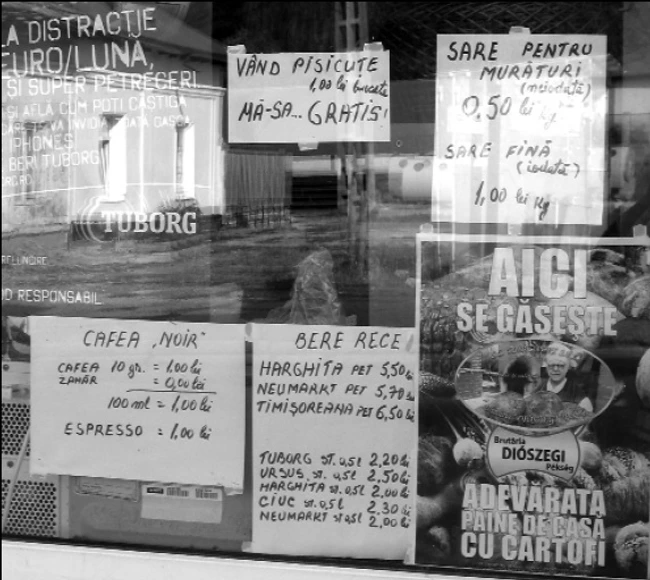 A DISTRACȚIE
EURO/LUNA,
ȘI SUPER PETRECERI.
ȘI AFLĂ CUM POȚI CÂȘTIGA
PHONES
BERI TUBORG
TUBORG
OD RESPONSABIL
VÂND PISICUTE
1,00 lei bucata
MĂ-SA... GRATIS!
SARE PENTRU
MURĂTURI
(neiodată)
0,50 lei kg
SARE FINĂ
(iodată)
1,00 lei kg
CAFEA „NOIR"
CAFEA 10 gr. = 1,00 lei
ZAHĂR = 0,00 lei
100 ml = 1,00 lei
ESPRESSO = 1,00 lei
BERE RECE
HARGHITA PET 5,50 lei
NEUMARKT PET 5,70 lei
TIMIȘOREANA PET 6,50 lei
TUBORG ST. 0,5 l 2,20 lei
URSUS ST. 0,5 l 2,50 lei
HARGHITA ST. 0,5 l 2,00 lei
CIUC ST. 0,5 l 2,30 lei
NEUMARKT ST. 0,5 l 2,00 lei
AICI
SE GĂSEȘTE
Brutăria
DIÓSZEGI
Pékség
ADEVĂRATA
PÂINE DE CASĂ
CU CARTOFI